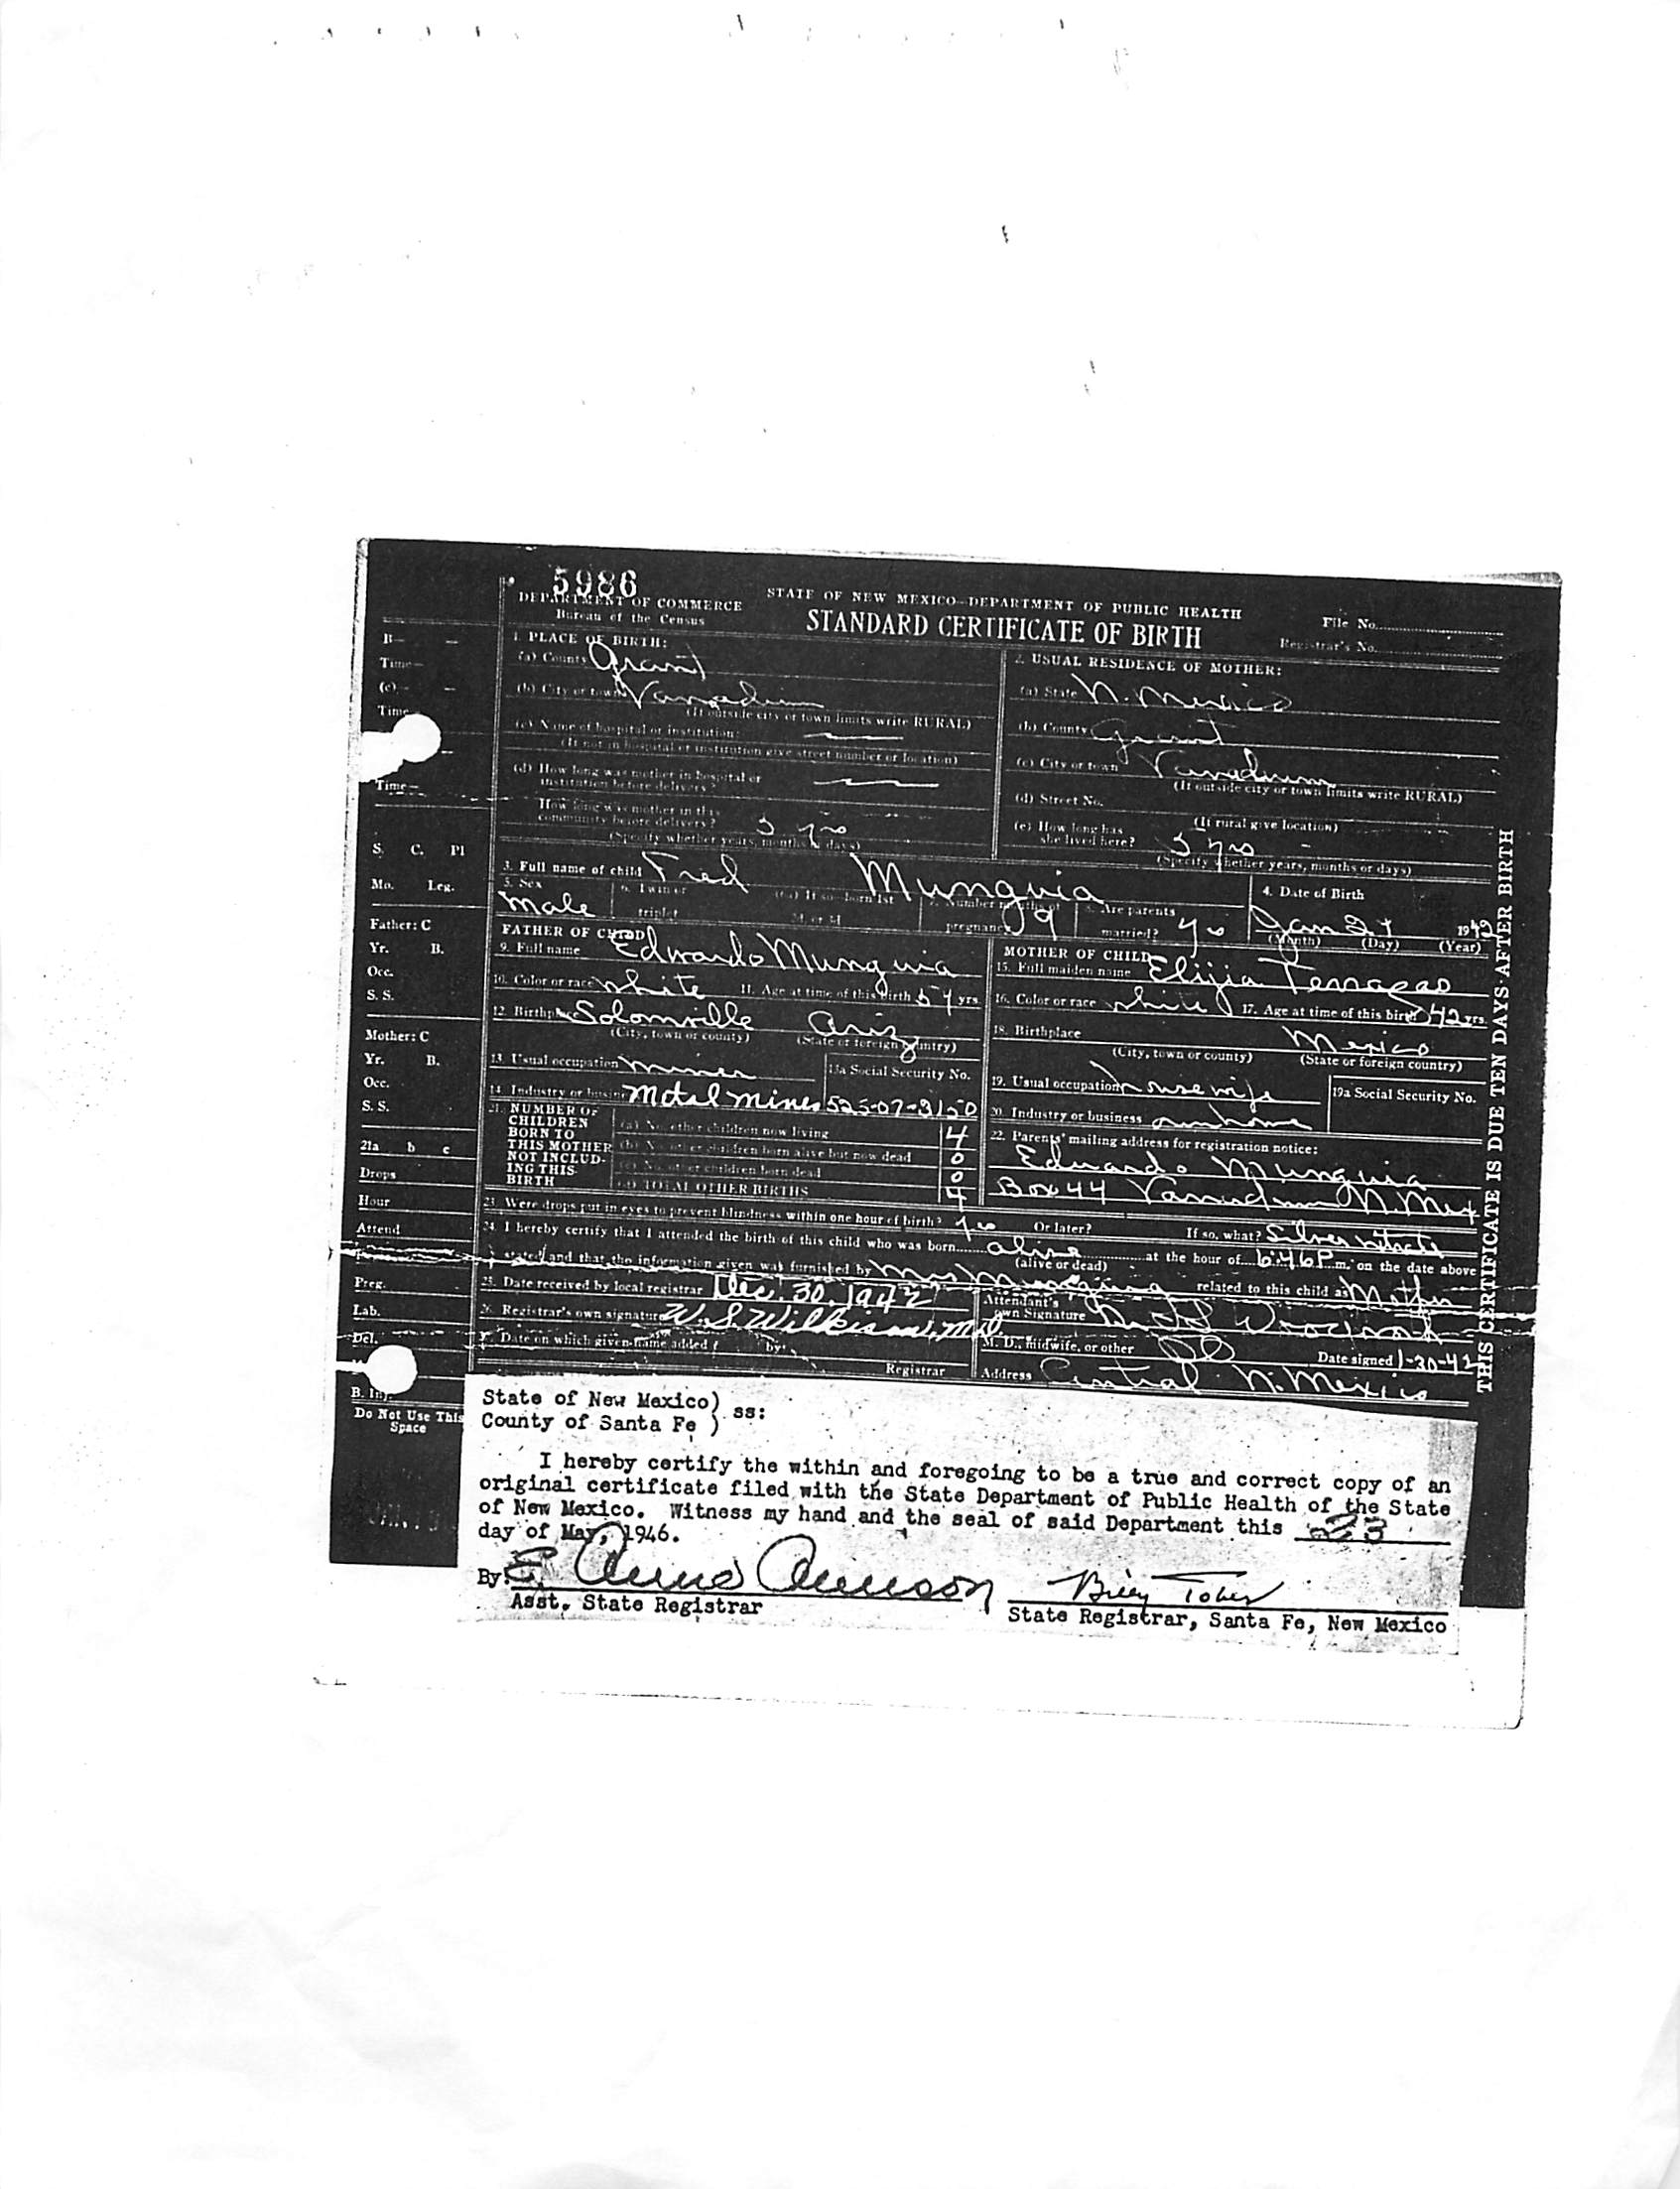 5986
DEPARTMENT OF COMMERCE
Bureau of the Census
STATE OF NEW MEXICO—DEPARTMENT OF PUBLIC HEALTH
STANDARD CERTIFICATE OF BIRTH
File No.
Registrar's No.
1. PLACE OF BIRTH:
(a) County Grant
(b) City or town Vanadium
(If outside city or town limits write RURAL)
(c) Name of hospital or institution:
(If not in hospital or institution give street number or location)
(d) How long was mother in hospital or
institution before delivery?
How long was mother in this
community before delivery? 5 yrs
(Specify whether years, months or days)
2. USUAL RESIDENCE OF MOTHER:
(a) State N. Mexico
(b) County Grant
(c) City or town Vanadium
(If outside city or town limits write RURAL)
(d) Street No.
(If rural give location)
(e) How long has
she lived here? 5 yrs
(Specify whether years, months or days)
3. Full name of child Fred Munguia
4. Date of Birth
Jan 1942
(Month) (Day) (Year)
5. Sex
Male
6. Twin or
triplet
(a) If so—born 1st
2d or 3d
7. Number months of
pregnancy 9
8. Are parents
married? yes
FATHER OF CHILD
9. Full name Edwardo Munguia
10. Color or race White 11. Age at time of this birth yrs.
12. Birthplace Solomville Ariz
(City, town or county) (State or foreign country)
13. Usual occupation miner
13a Social Security No.
14. Industry or business Metal mines 525-07-3150
MOTHER OF CHILD
15. Full maiden name
16. Color or race white 17. Age at time of this birth 42 yrs.
18. Birthplace Mexico
(City, town or county) (State or foreign country)
19. Usual occupation housewife
19a Social Security No.
20. Industry or business own home
21. NUMBER OF
CHILDREN
BORN TO
THIS MOTHER
NOT INCLUD-
ING THIS
BIRTH
(a) No. other children now living 4
(b) No. other children born alive but now dead 0
(c) No. other children born dead 0
(d) TOTAL OTHER BIRTHS 4
22. Parents' mailing address for registration notice:
Eduardo Munguia
Box 44 Vanadium N. Mex
23. Were drops put in eyes to prevent blindness within one hour of birth? yes Or later? If so, what? Silver nitrate
24. I hereby certify that I attended the birth of this child who was born alive at the hour of 6:46 P. m. on the date above
(alive or dead)
stated and that the information given was furnished by Mrs Munguia related to this child as Mother
25. Date received by local registrar Dec. 30, 1942
26. Registrar's own signature W. S. Wilkinson, M.D.
27. Date on which given name added by
Registrar
Attendant's
own Signature
M. D., midwife, or other Date signed 1-30-42
Address Central N. Mexico
B— —
Time—
(c)— —
Time
Time—
S. C. Pl
Mo. Leg.
Father: C
Yr. B.
Occ.
S. S.
Mother: C
Yr. B.
Occ.
S. S.
21a b c
Drops
Hour
Attend
Preg.
Lab.
Del.
B. Inj.
Do Not Use This
Space
THIS CERTIFICATE IS DUE TEN DAYS AFTER BIRTH
State of New Mexico)
County of Santa Fe ) ss:
I hereby certify the within and foregoing to be a true and correct copy of an
original certificate filed with the State Department of Public Health of the State
of New Mexico. Witness my hand and the seal of said Department this 23
day of May, 1946.
By:
Asst. State Registrar
Billy Tober
State Registrar, Santa Fe, New Mexico